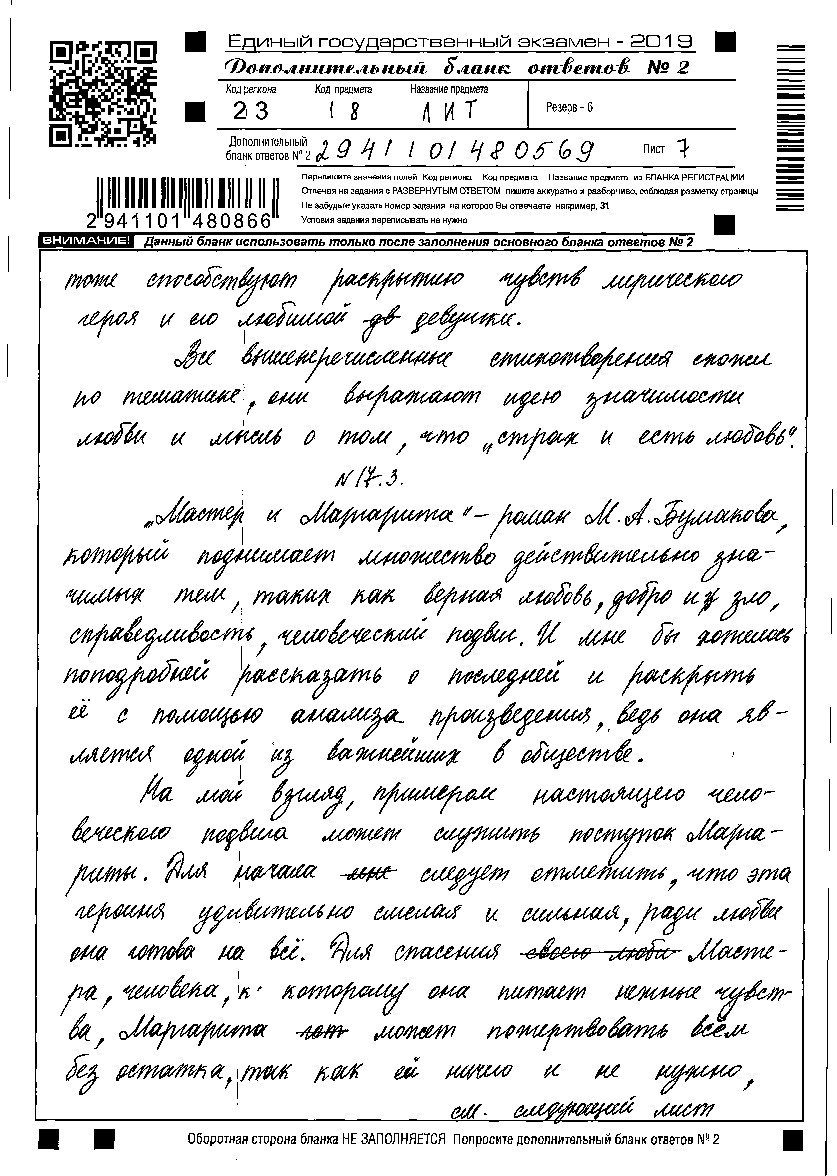 Единый государственный экзамен - 2019
Дополнительный бланк ответов № 2
Код региона Код предмета Название предмета
23 18 ЛИТ Резерв - 6
Дополнительный бланк ответов № 2 2941101480569 Лист 7
Перепишите значения полей Код региона Код предмета Название предмета из БЛАНКА РЕГИСТРАЦИИ
Отвечая на задания с РАЗВЕРНУТЫМ ОТВЕТОМ пишите аккуратно и разборчиво, соблюдая разметку страницы
Не забудьте указать номер задания на которое Вы отвечаете например, 31
Условия задания переписывать не нужно
2941101480866
ВНИМАНИЕ! Данный бланк использовать только после заполнения основного бланка ответов № 2
тоже способствуют раскрытию чувств лирического
героя и его любимой дв девушки.
Все вышеперечисленные стихотворения схожи
по тематике, они выражают идею значимости
любви и мысль о том, что „страх и есть любовь".
N 17.3.
„Мастер и Маргарита" – роман М. А. Булгакова,
который поднимает множество действительно зна-
чимых тем, таких как верная любовь, добро и зло,
справедливость, человеческий подвиг. И мне бы хотелось
поподробней рассказать о последней и раскрыть
её с помощью анализа произведения, ведь она яв-
ляется одной из важнейших в обществе.
На мой взгляд, примером настоящего чело-
веческого подвига может служить поступок Марга-
риты. Для начала мне следует отметить, что эта
героиня удивительно смелая и сильная, ради любви
она готова на всё. Для спасения своего люби Масте-
ра, человека, к которому она питает нежные чувст-
ва, Маргарита гот может пожертвовать всем
без остатка, так как ей ничего и не нужно,
см. следующий лист
Оборотная сторона бланка НЕ ЗАПОЛНЯЕТСЯ Попросите дополнительный бланк ответов № 2